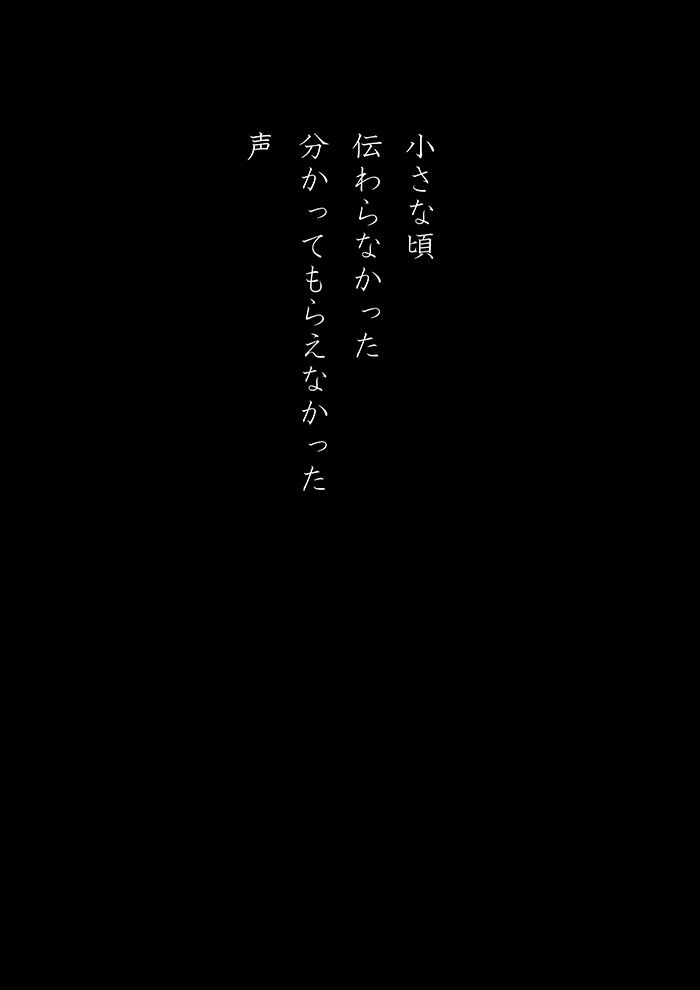 小さな頃
伝わらなかった
分かってもらえなかった
声